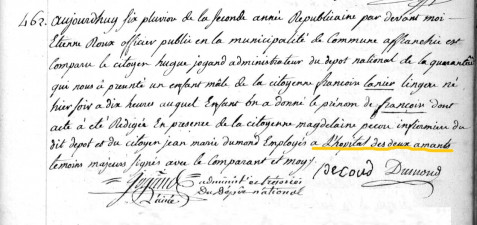 462. aujourdhuy six pluviose de la seconde année Republicaine par devant moi
Etienne Roux officier public en la municipalité de Commune affranchie est
comparu le citoyen hugue joyand administrateur du depot national de la quarantene
qui nous a presenté un enfant mâle de la citoyenne francoise lanier lingere né
hier soir a dix heures auquel Enfant on a donné le prénom de francois dont
acte a été Rédigée En presence de la citoyenne magdelaine infirmiere du
dit depot et du citoyen jean marie dumond Employés a l'hopital des deux amants
temoins majeurs signés avec le comparant et moy
Decoud Dumond
administ
du Dépôt national